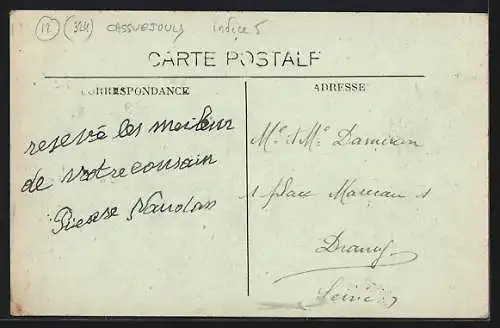 12 324 CASSUEJOULS indice 5
CARTE POSTALE
CORRESPONDANCE
ADRESSE
resevé les meileur
de votre cousain
Pierre Naudan
Mr & Me Damiean
1 place Marceau 1
Drancy
Seine